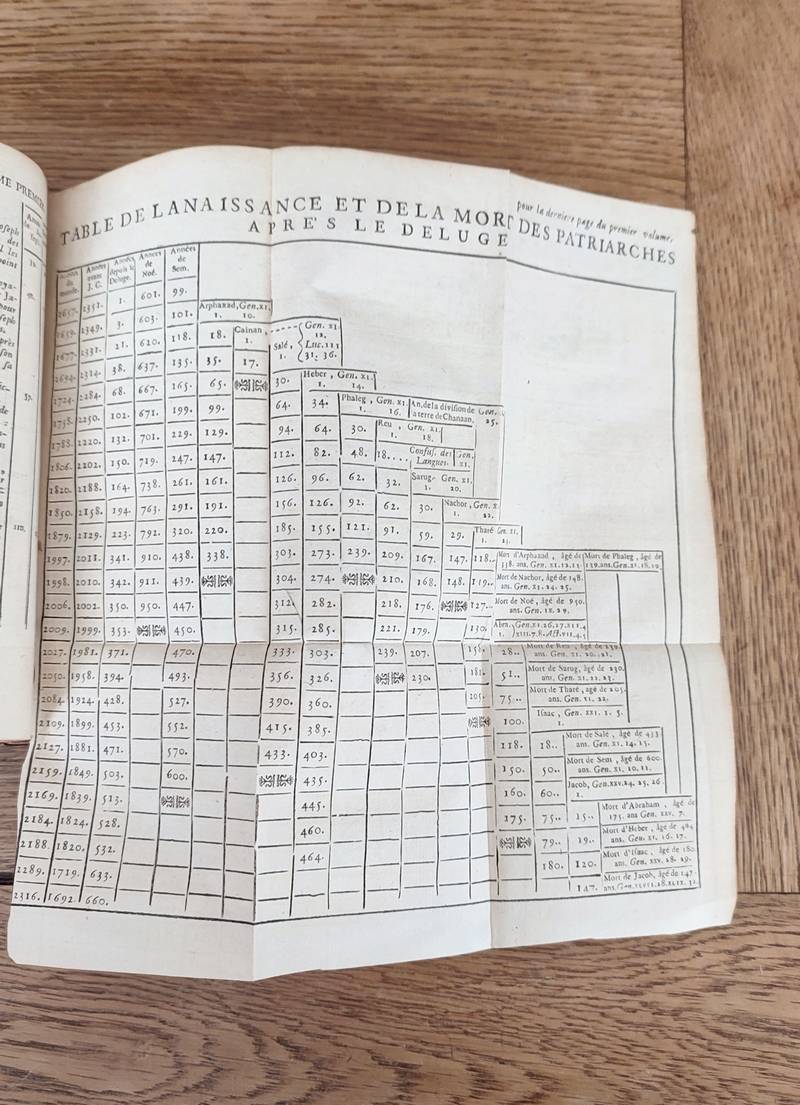 ME PREMIER
pour la derniere page du premier volume,
TABLE DE LA NAISSANCE ET DE LA MORT DES PATRIARCHES
APRE'S LE DELUGE
Années du monde. Années avant J. C. Années depuis le Deluge. Années de Noé. Années de Sem.
2657. 2351. 1. 601. 99.
Arphaxad, Gen. XI. 10.
2659. 2349. 3. 603. 101. 1.
Cainan, 1.
1677. 2331. 21. 620. 118. 18.
Salé, 1. Gen. XI. 12. Luc. III 31. 36.
2694. 2314. 38. 637. 135. 35. 17.
Heber, Gen. XI. 14.
1724. 2284. 68. 667. 165. 65. 30. 1.
Phaleg, Gen. XI. 1. 16.
An. de la division de la terre de Chanaan. Gen. 25.
1758. 2250. 102. 671. 199. 99. 64. 34.
Reu, Gen. XI. 1. 18.
1788. 2220. 132. 701. 229. 129. 94. 64. 30.
Confus. des Langues. Gen. XI.
1806. 2202. 150. 719. 247. 147. 112. 82. 48. 18....
Sarug. Gen. XI. 1. 20.
1820. 2188. 164. 738. 261. 161. 126. 96. 62. 32.
Nachor, Gen. X 1. 22.
1850. 2158. 194. 763. 291. 191. 156. 126. 92. 62. 30.
Tharé Gen. XI. 1.
1879. 2129. 223. 792. 320. 220. 185. 155. 121. 91. 59. 29.
1997. 2011. 341. 910. 438. 338. 303. 273. 239. 209. 167. 147. 118.. Mort d'Arphaxad, âgé de 338. ans. Gen. XI. 12. 13. Mort de Phaleg, âgé de 239. ans. Gen. XI. 18. 19.
1998. 2010. 342. 911. 439. 304. 274. 210. 168. 148. 119.. Mort de Nachor, âgé de 148. ans. Gen. XI. 24. 25.
2006. 2002. 350. 950. 447. 312. 282. 218. 176. 127.. Mort de Noé, âgé de 950. ans. Gen. IX. 29.
2009. 1999. 353. 450. 315. 285. 221. 179. 130. Abra. 1. Gen. XI. 26. 27.
2027. 1981. 371. 470. 333. 303. 239. 207. 158. 28.. Mort de Reu, âgé de 239. ans. Gen. XI. 20. 21.
2050. 1958. 394. 493. 356. 326. 230. 181. 51.. Mort de Sarug, âgé de 230. ans. Gen. XI. 22. 23.
2084. 1924. 428. 527. 390. 360. 205. 75.. Mort de Tharé, âgé de 205. ans. Gen. XI. 32.
2109. 1899. 453. 552. 415. 385. 100. Isaac, Gen. XXI. 2. 5. 1.
2127. 1881. 471. 570. 433. 403. 118. 18.. Mort de Salé, âgé de 433 ans. Gen. XI. 14. 15.
2159. 1849. 503. 600. 435. 150. 50.. Mort de Sem, âgé de 600. ans. Gen. XI. 10. 11.
2169. 1839. 513. 445. 160. 60.. Jacob, Gen. XXV. 24. 25. 26. 1.
2184. 1824. 528. 460. 175. 75.. 15.. Mort d'Abraham, âgé de 175. ans Gen. XXV. 7.
2188. 1820. 532. 464. 79.. 19.. Mort d'Heber, âgé de 464 ans. Gen. XI. 16. 17.
2289. 1719. 633. 180. 120. Mort d'Isaac, âgé de 180. ans. Gen. XXV. 28. 29.
2316. 1692. 660. 147. Mort de Jacob, âgé de 147.